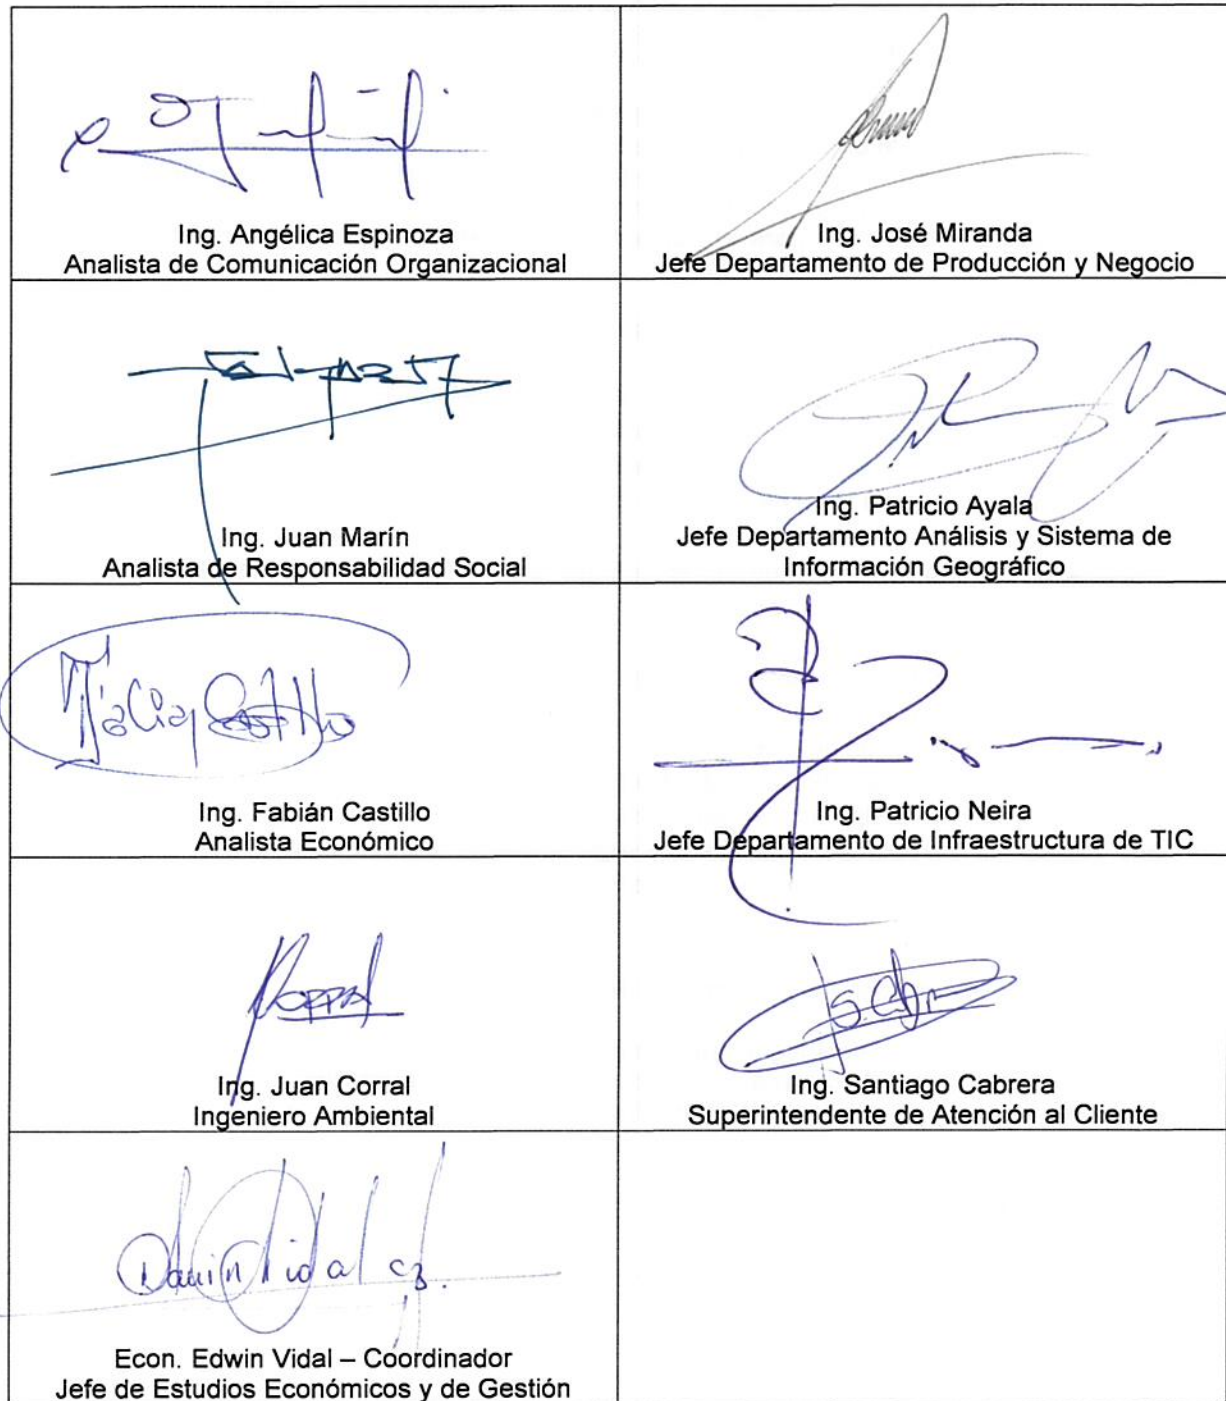 Ing. Angélica Espinoza
Analista de Comunicación Organizacional
Ing. José Miranda
Jefe Departamento de Producción y Negocio
Ing. Juan Marín
Analista de Responsabilidad Social
Ing. Patricio Ayala
Jefe Departamento Análisis y Sistema de
Información Geográfico
Castillo
Ing. Fabián Castillo
Analista Económico
Ing. Patricio Neira
Jefe Departamento de Infraestructura de TIC
Ing. Juan Corral
Ingeniero Ambiental
Ing. Santiago Cabrera
Superintendente de Atención al Cliente
Vidal
Econ. Edwin Vidal – Coordinador
Jefe de Estudios Económicos y de Gestión